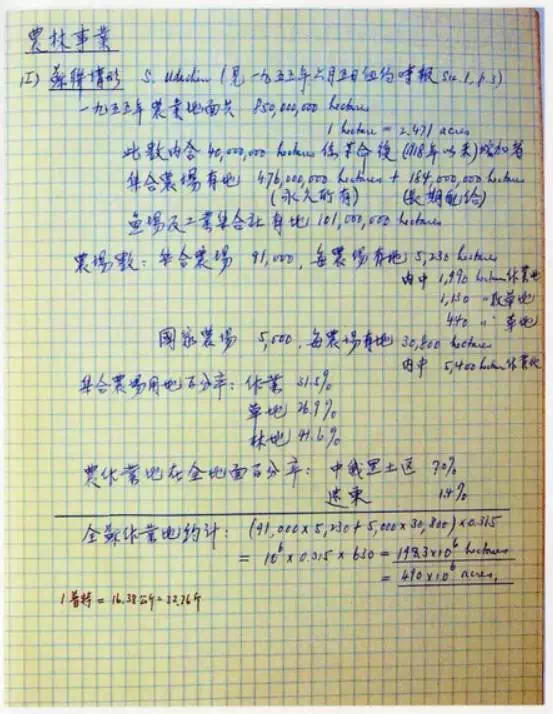 農林事業
(I) 蘇聯情形 S. (見一九五五年六月五日紐約時報 Sec. 1, p. 3)
一九五五年農業地面共 850,000,000 hectares
1 hectare = 2.471 acres
此數內含 40,000,000 hectares 係革命後 (1918年以來) 增加者
集合農場有地 476,000,000 hectares + 184,000,000 hectares
(永久所有) (長期配給)
魚場及工業集合社有地 101,000,000 hectares
農場數: 集合農場 91,000, 每農場有地 5,230 hectares
內中 1,990 hectares 作業地
1,150 〃 牧草地
440 〃 草地
國家農場 5,000, 每農場有地 30,800 hectares
內中 5,400 hectares 作業地
集合農場用地百分率: 作業 31.5%
草地 26.9%
林地 41.6%
農作業地在全地面百分率: 中俄黑土区 70%
遠東 1.4%
全蘇作業地約計: (91,000 x 5,230 + 5,000 x 30,800) x 0.315
= 10⁶ x 0.315 x 630 = 198.3 x 10⁶ hectares
= 490 x 10⁶ acres.
1 普特 = 16.38 公斤 = 32.76 斤